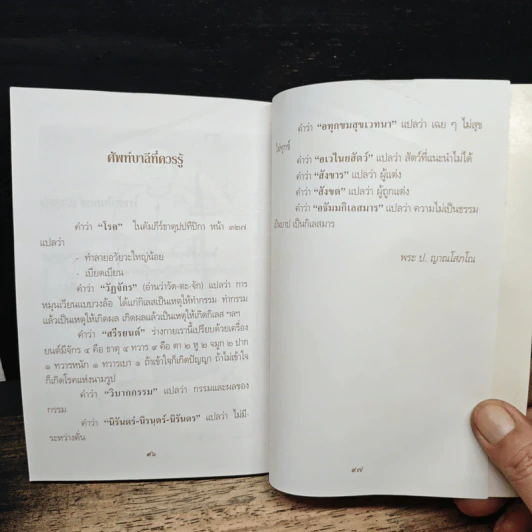 ศัพท์บาลีที่ควรรู้
คำว่า “โรอ” ในคัมภีร์ธาตุปปทีปิกา หน้า ๓๒๗
แปลว่า
- ทำลายอวัยวะใหญ่น้อย
- เบียดเบียน
คำว่า “วัฏจักร” (อ่านว่าวัด-ตะ-จัก) แปลว่า การ
หมุนเวียนแบบวงล้อ ได้แก่กิเลสเป็นเหตุให้ทำกรรม ทำกรรม
แล้วเป็นเหตุให้เกิดผล เกิดผลแล้วเป็นเหตุให้เกิดกิเลส ฯลฯ
คำว่า “สรีรยนต์” ร่างกายเรานี้เปรียบด้วยเครื่อง
ยนต์มีจักร ๔ คือ ธาตุ ๔ ทวาร ๙ คือ ตา ๒ หู ๒ จมูก ๒ ปาก
๑ ทวารหนัก ๑ ทวารเบา ๑ ถ้าเข้าใจก็เกิดปัญญา ถ้าไม่เข้าใจ
ก็เกิดโรคแห่งนามรูป
คำว่า “วิบากกรรม” แปลว่า กรรมและผลของ
กรรม
คำว่า “นิรันดร์-นิรนฺตร์-นิรันดร” แปลว่า ไม่มี-
ระหว่างคั่น
๙๖
คำว่า “อทุกขมสุขเวทนา” แปลว่า เฉย ๆ ไม่สุข
ไม่ทุกข์
คำว่า “อเวไนยสัตว์” แปลว่า สัตว์ที่แนะนำไม่ได้
คำว่า “สังขาร” แปลว่า ผู้แต่ง
คำว่า “สังขต” แปลว่า ผู้ถูกแต่ง
คำว่า “อธัมมกิเลสมาร” แปลว่า ความไม่เป็นธรรม
เป็นบาป เป็นกิเลสมาร
พระ ป. ญาณโสภโณ
๙๗